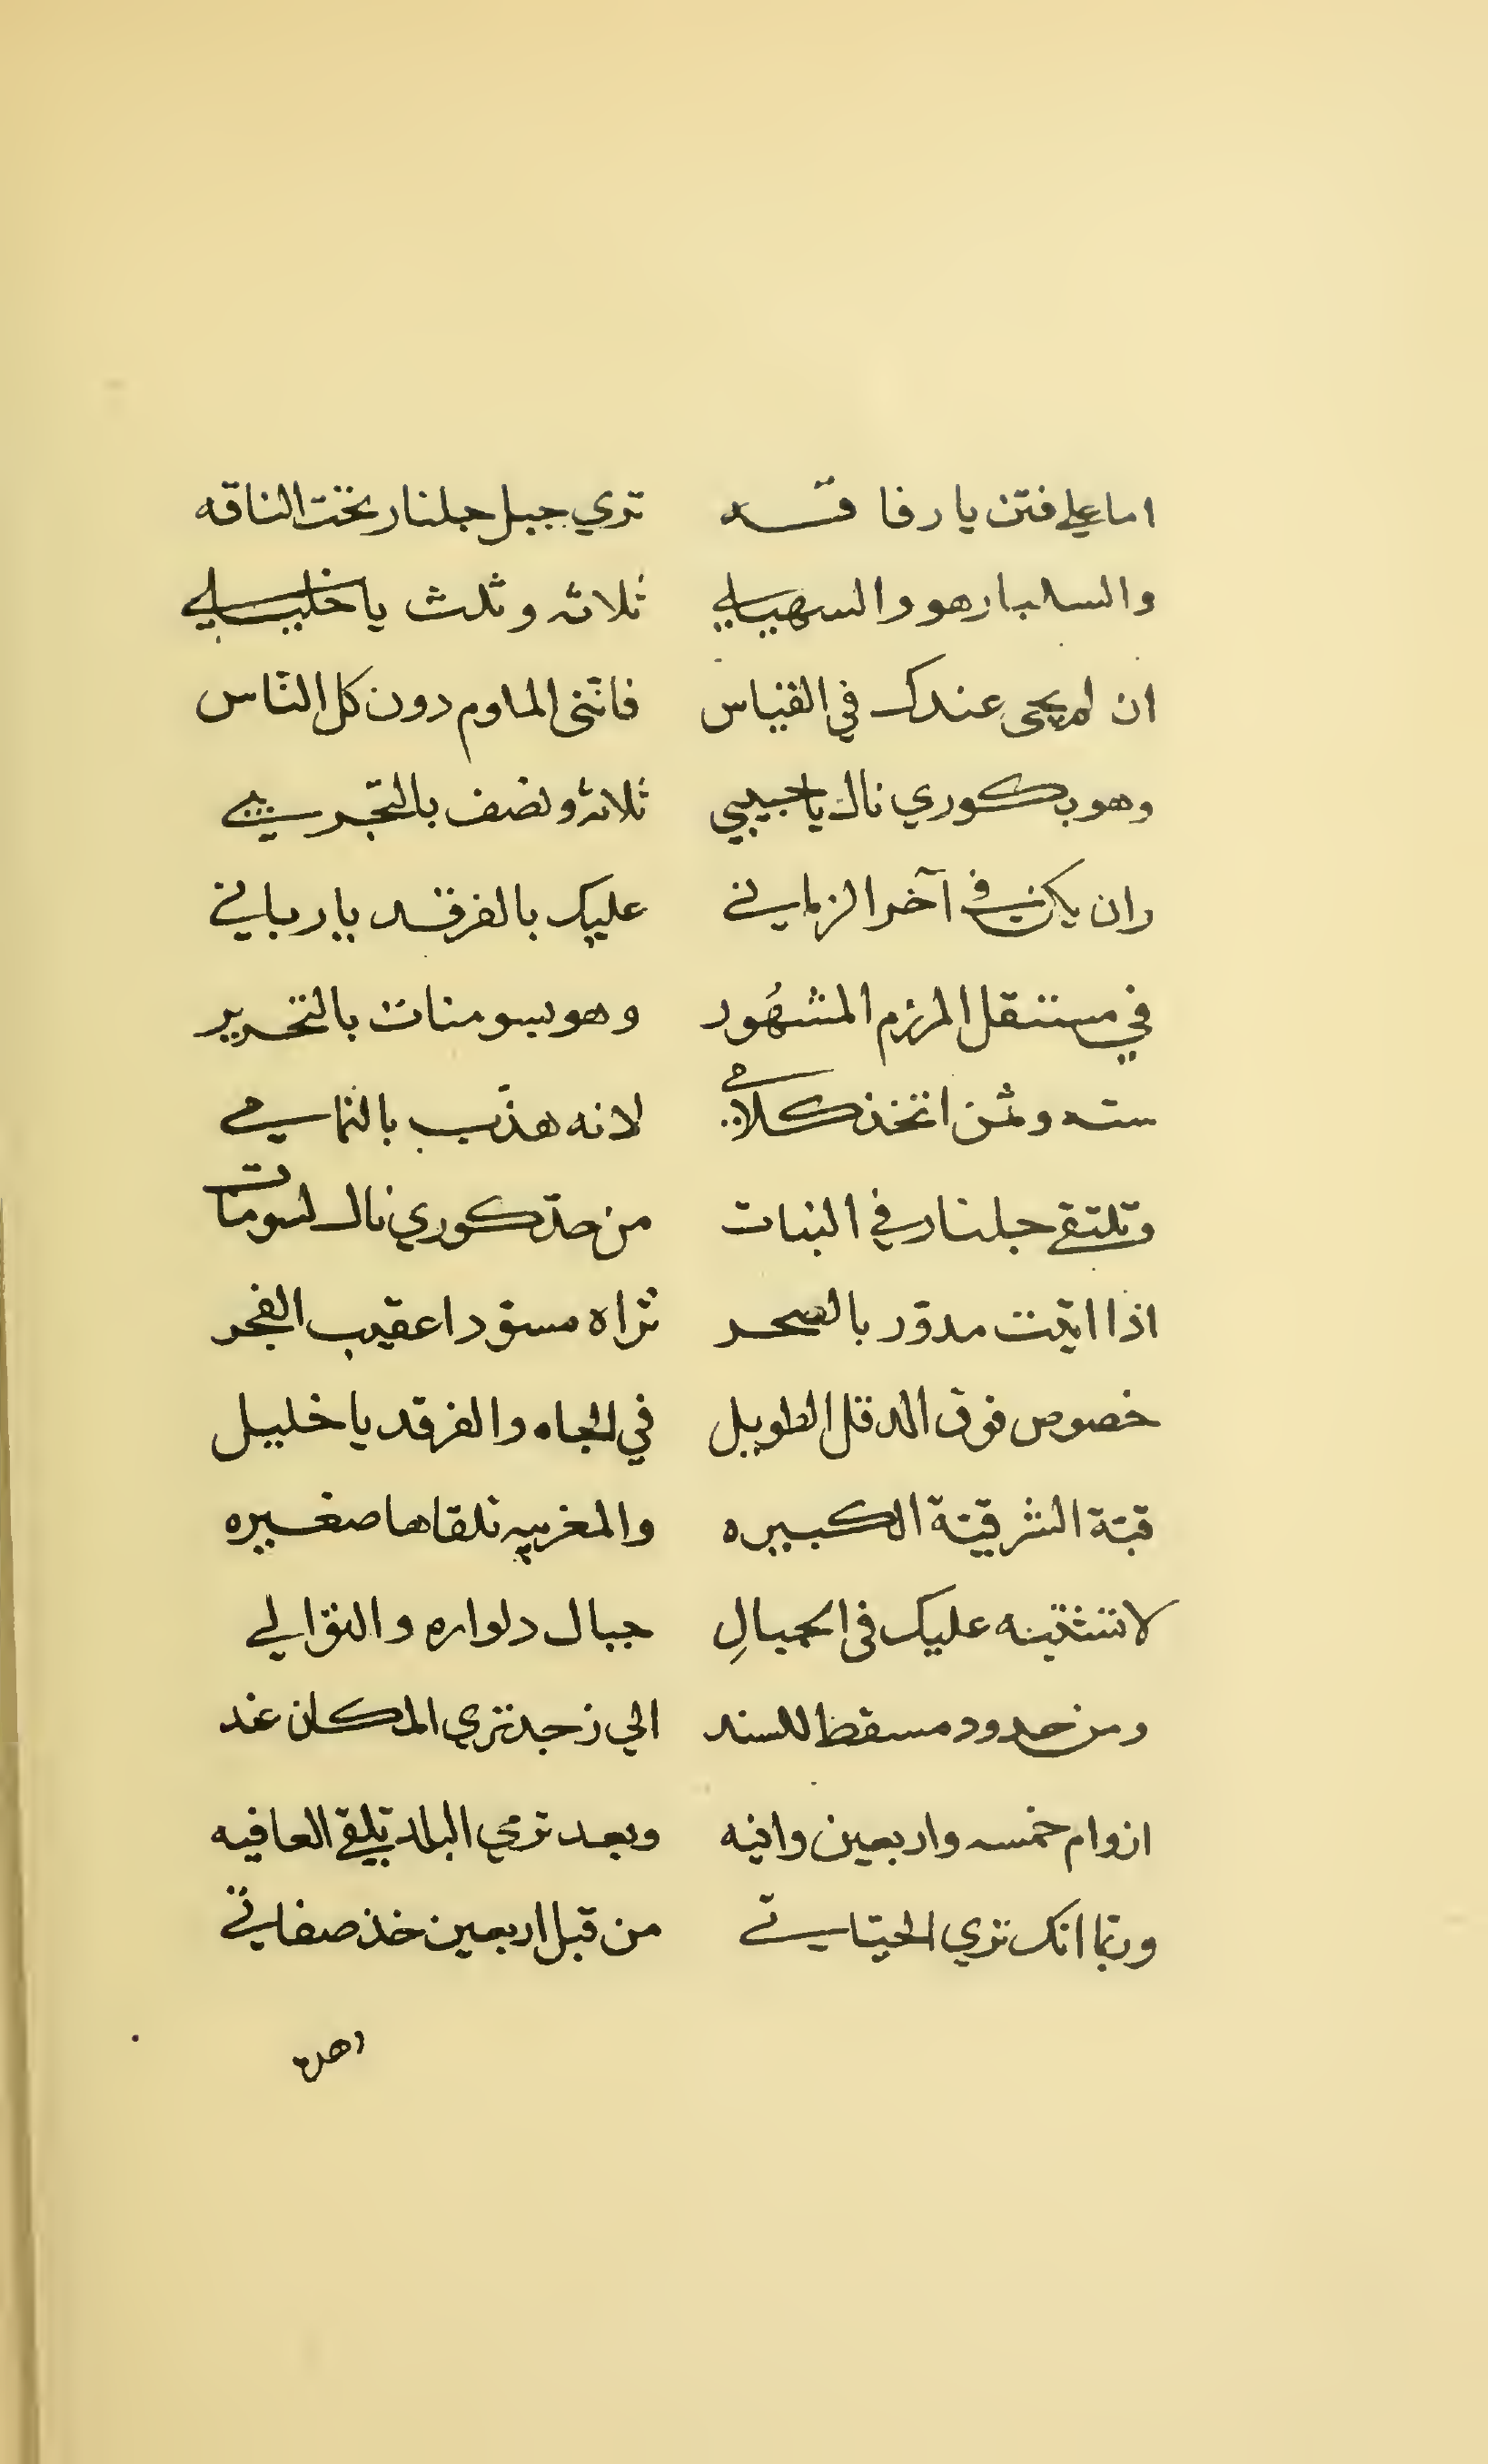 اما على فتن يا رفاقه تري جبل جلنار تحت الناقه
والسلبار هو والسهيلي ثلاثه وثلث يا خليلي
ان لم يجى عندك في القياس فانني الماوم دون كل الناس
وهو بكوري نال يا حبيبي ثلاثه ونصف بالتجريبي
وان يكن في آخر الزماني عليك بالفرقد يا رباني
في مستقل المرزم المشهُور وهو بسومنات بالتحرير
سته وثمن اتخذ كلامي لانه هذّب بالتمامي
وتلتقي جلنار في النبات من حدّ كوري نال لسومنات
اذا اتيت مدوّر بالسحر تراه مسوّدا عقيب الفجر
خصوص فوق الدقل الطويل في الجاه والفرقد يا خليل
قبّة الشرقيّة الكبيره والمغربيه تلقاها صغيره
لا تشتبه عليك فى الجبالِ جبال دلواره والتوالي
ومن حدود مسقط للسند الي زجد تري المكان عند
ازوام خمسه واربعين وافيه وبعد ترمي البلد تلقي العافيه
وربّما انك تري الحيّاتي من قبل اربعين خذ صفاتي